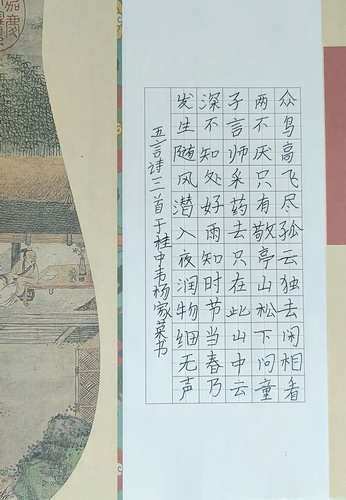 众鸟高飞尽孤云独去闲相看
两不厌只有敬亭山松下问童
子言师采药去只在此山中云
深不知处好雨知时节当春乃
发生随风潜入夜润物细无声
五言诗三首于桂中韦杨家菜书